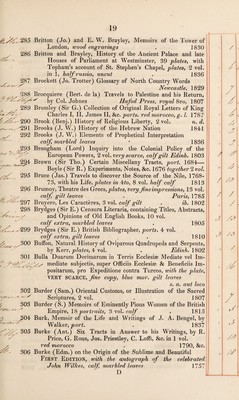 19
285 Britton (Jo.) and E. W. Brayley, Memoirs of the Tower of
London, wood engravings 1830
286 Britton and Brayley, History of the Ancient Palace and late
Houses of Parliament at Westminster, 39 plates, with
Topham's account of St. Stephen's Chapel, plates, 2 vol.
in 1, half russia, uncut 1836
287 Brockett (Jo. Trotter) Glossary of North Country Words
Newcastle, 1829
288 Brocquiere (Bert. de la) Travels to Palestine and his Return,
by Col. Johnes Hafod Press, royal 8vo, 1807
289 Bromley (Sir G.) Collection of Original Royal Letters of King
Charles I, II. James II, &c. ports. red morocco, g. l. 1787
290 Brook (Benj.) History of Religious Liberty, 2 vol. n. d.
291 Brooks (J. W.) History of the Hebrew Nation 1841
292 Brooks (J. W.) Elements of Prophetical Interpretation
calf, marbled leaves 1836
293 Brougham (Lord) Inquiry into the Colonial Policy of the
European Powers, 2 vol. very scarce, calf gilt Edinb. 1803
294 Brown (Sir Tho.) Certain Miscellany Tracts, port. 1684—
Boyle (Sir R.) Experiments, Notes, &c. 1676 together 2 vol.
295 Bruce (Jas.) Travels to discover the Source of the Nile, 1768-
73, with his Life, plates in 4to, 8 vol. half calf 1813
296 Brumoy, Theatre des Grecs, plates, very fine impressions, 13 vol.
calf, gilt leaves Paris, 1785
297 Bruyere, Les Caractères, 3 vol. calf gilt ib. 1802
298 Brydges (Sir E.) Censura Literaria, containing Titles, Abstracts,
and Opinions of Old English Books, 10 vol.
calf extra, marbled leaves 1805
299 Brydges (Sir E.) British Bibliographer, ports. 4 vol.
calf extra, gilt leaves 1810
300 Buffon, Natural History of Oviparous Quadrupeds and Serpents,
by Kerr, plates, 4 vol. Edinb. 1802
301 Bulla Duarum Dominarum in Terris Ecclesiæ Mediate vel Im-
mediate subjectis, super Officiis Ecclesiæ & Beneficiis Im-
positarum, pro Expeditione contra Turcos, with the plate,
VERY SCARCE, fine copy, blue mor. gilt leaves
s. n. aut loco
302 Burder (Sam.) Oriental Customs, or Illustration of the Sacred
Scriptures, 2 vol. 1807
303 Burder (S.) Memoirs of Eminently Pious Women of the British
Empire, 18 portraits, 3 vol. calf 1815
304 Burk, Memoir of the Life and Writings of J. A. Bengel, by
Walker, port. 1837
305 Burke (Ant.) Six Tracts in Answer to his Writings, by R.
Price, G. Rous, Jos. Priestley, C. Lofft, &c. in 1 vol.
red morocco 1790, &c.
306 Burke (Edm.) on the Origin of the Sublime and Beautiful
FIRST EDITION, with the autograph of the celebrated
John Wilkes, calf, marbled leaves 1757
D